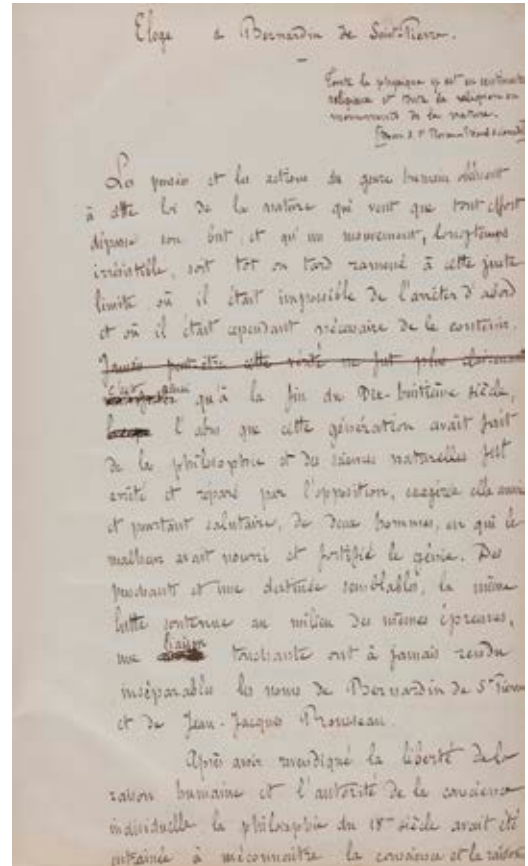 Eloge de Bernardin de Saint-Pierre.
Toute la physique est en
religieux et toute la religion en
monuments de la nature.
Les pensées et les actions du genre humain obéissent
à cette loi de la nature qui veut que tout effort
dépasse son but et qu'un mouvement, longtemps
irrésistible, soit tôt ou tard ramené à cette juste
limite où il était impossible de l'arrêter d'abord
et où il était cependant nécessaire de le contenir.
Jamais peut-être cette vérité ne fut plus
c'est ainsi qu'à la fin du Dix-huitième siècle,
l'abus que cette génération avait fait
de la philosophie et des sciences naturelles fut
arrêté et réparé par l'opposition, exagérée elle aussi
et pourtant salutaire, de deux hommes, en qui le
malheur avait nourri et fortifié le génie. Des
penchants et une destinée semblables, la même
lutte soutenue au milieu des mêmes épreuves,
une liaison touchante ont à jamais rendu
inséparables les noms de Bernardin de St Pierre
et de Jean-Jacques Rousseau.
Après avoir revendiqué la liberté de la
raison humaine et l'autorité de la conscience
individuelle la philosophie du 18me siècle avait été
entraînée à méconnaître la conscience et la raison